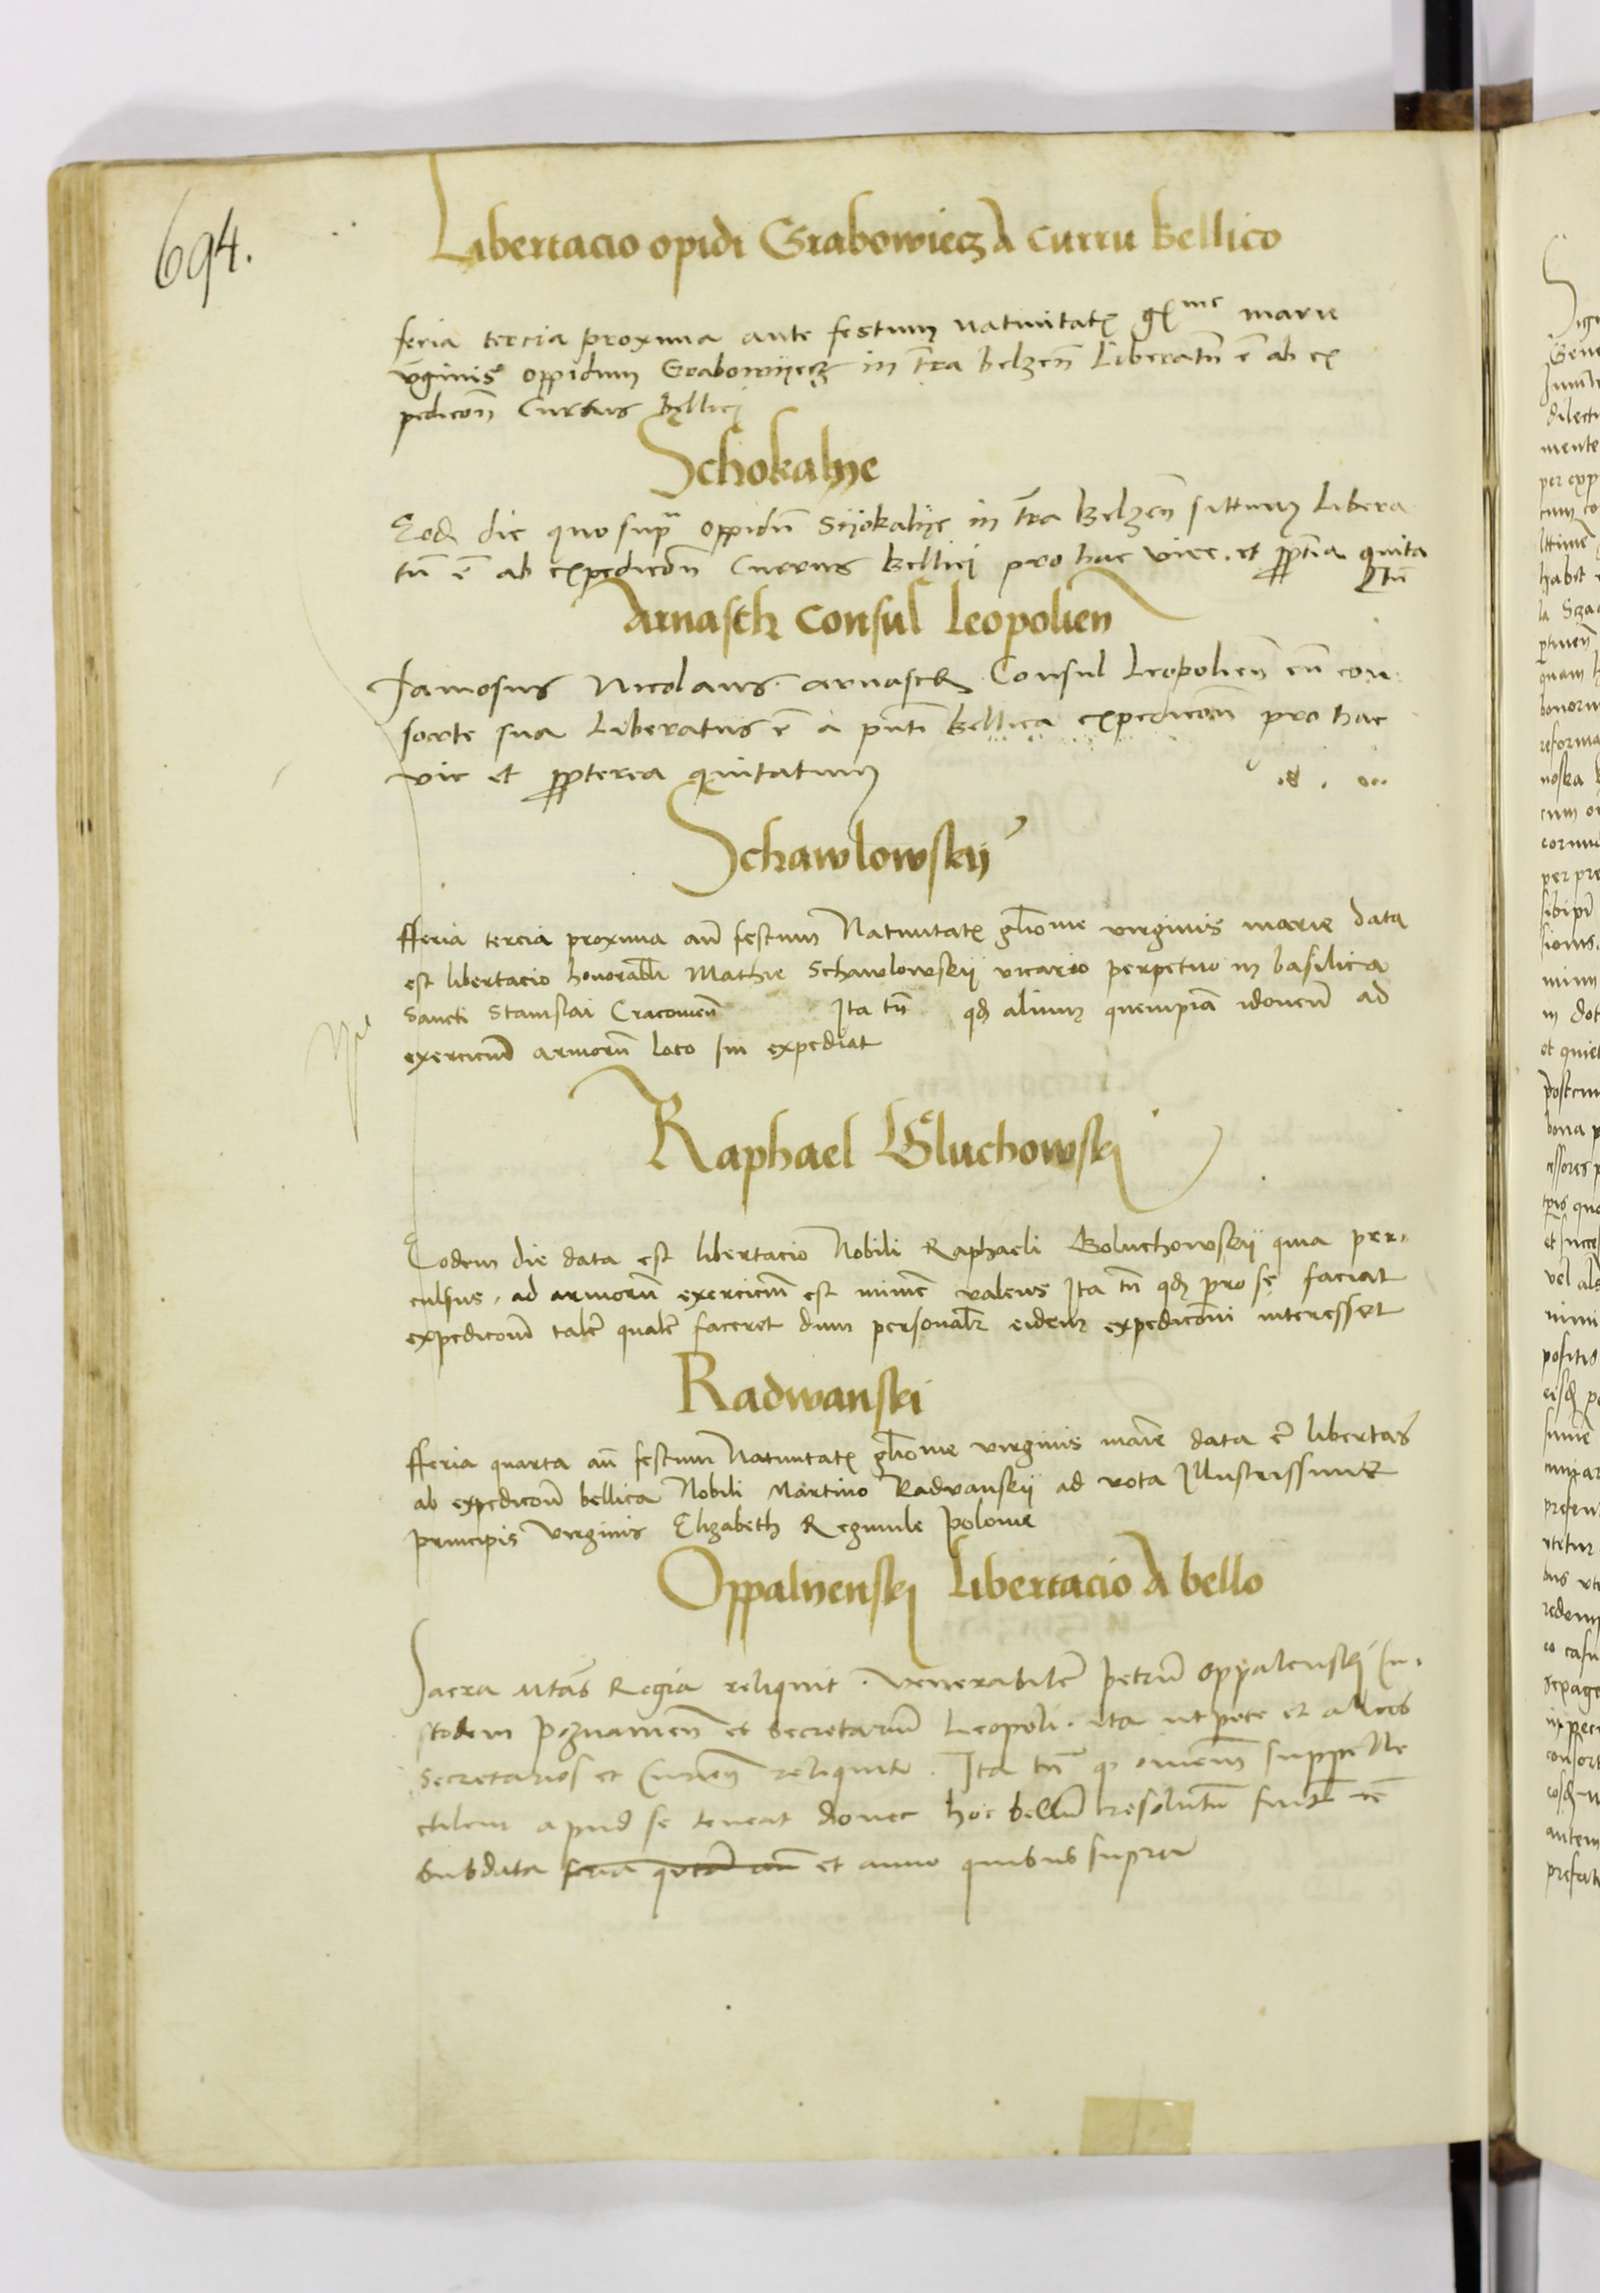 694.
Libertacio opidi Grabowiecz A curru bellico
feria tercia proxima ante festum natiuitatꝭ gl͞me marie
v͞ginis oppidum Grabowyecz in t͞ra belzen̄ liberatū ē ab ex
pedicōn currus bellicj
Schokalye
Eod die quo supª oppidū Syokalye in t͞ra Belzen̄ sittum libera
tū ē ab expedicōn currus bellicj pro hac vice et ꝓpt͞ia quita
tū
Arnasth Consul leopolien̄
Famosus Nicolaus arnasth Consul leopolien̄ cū con
sorte sua liberatus ē a pn̄ti bellica expedicōn pro hac
vic et ꝓpterea quitatum
Schawlowskij
fferia tercia proxima an̄ festum Natiuitatꝭ gl͞iome virginis marie data
est libertacio honorabli Mathie Schawlowskij vicario perpetuo in basilica
Sancti Stanislai Cracouien̄ Ita tn̄ qd alium quempiā idoneū ad
exerciciū armorū loco sui expediat
Raphael Gluchowskj
Eodem die data est libertacio Nobili Raphaeli Goluchowskij quia per
culsus ad armorū exerciciū est minīe valens Ita tn̄ qd pro se faciat
expedicōnē talē qualē faceret dum personalr eidem expedicōni interesset
Radwanski
fferia quarta an̄ festum Natiuitatꝭ gl͞iome virginis marīe data ē libertas
ab expedicōnē bellica Nobili Martino Radvanskij ad vota Illustrissime
principis virginis Elizabeth Regnule polonie
Oppalyenskj libertacio A bello
Sacra Mtās Regia reliquit venerabilē petrū Oppalenskj Cu
stodem poznanien̄ et secretariū leopoli ita utpote et alios
secretarios et Curien̄ reliquit Ita tn̄ qd omnem suppelle
ctilem apud se teneat donec hoc bellū resolutū fuerit
sub data feria quarta an̄ et anno quibus supra